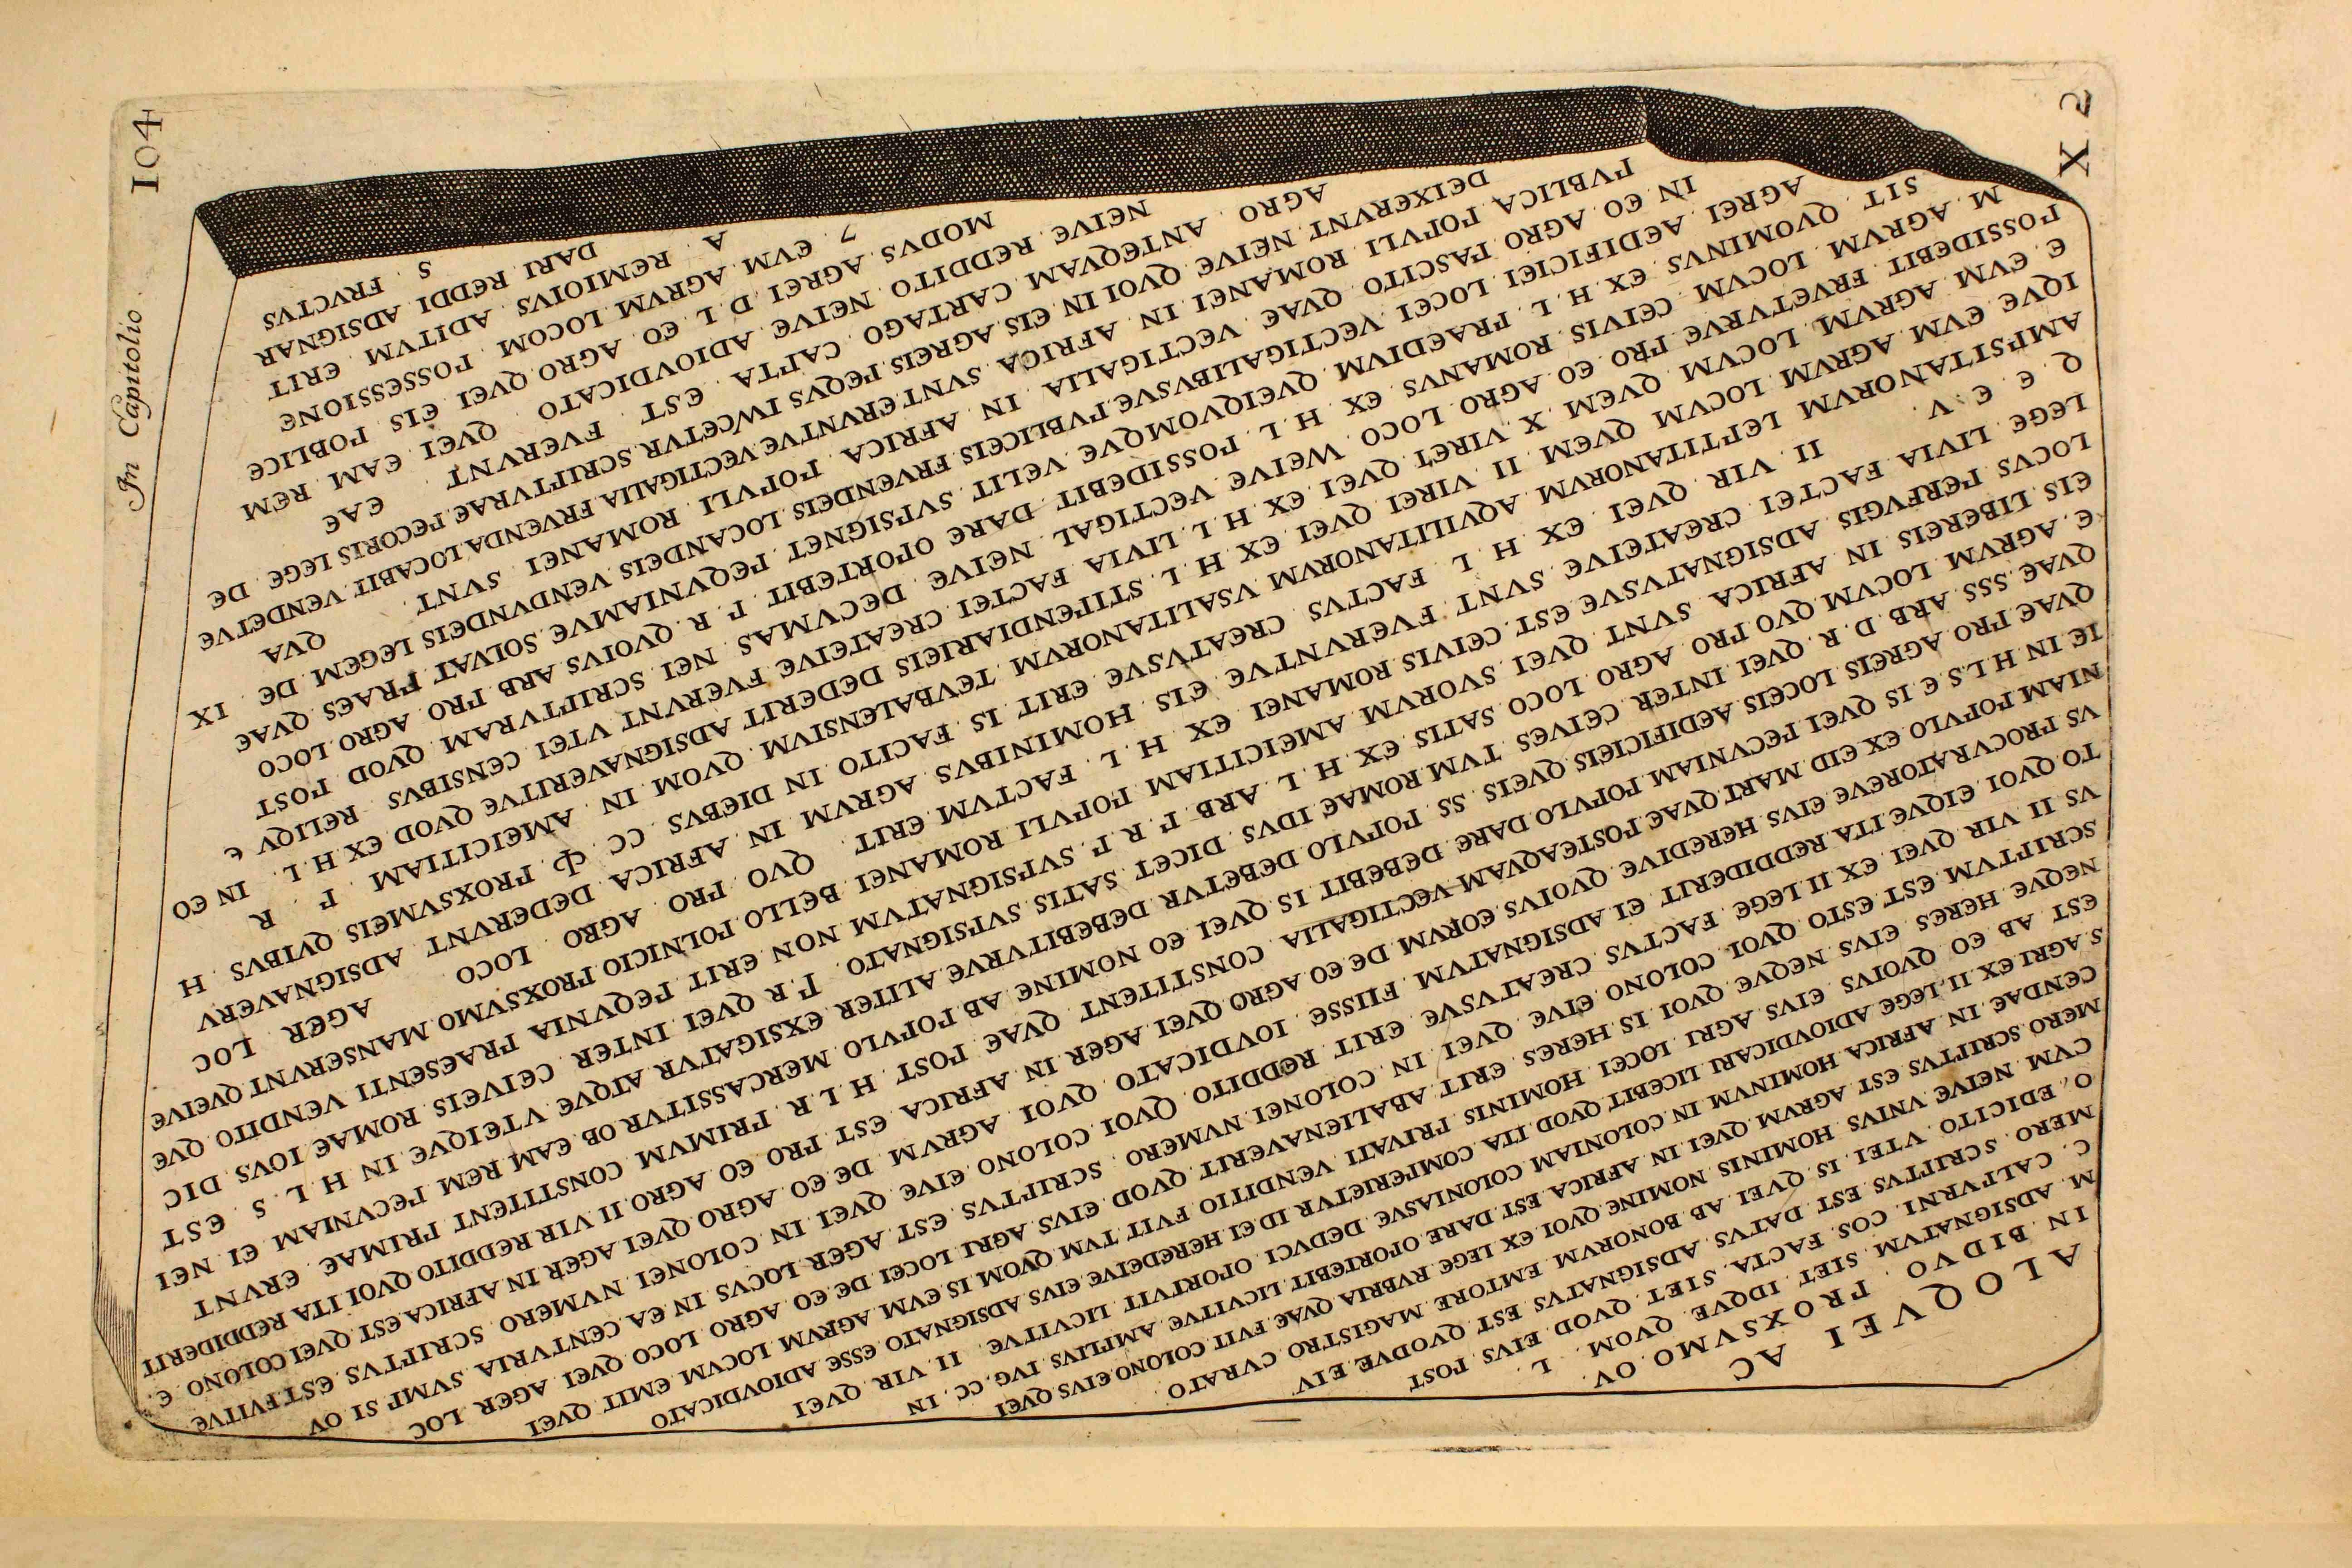 A L O Q V E I AC
IN BIDVO . PROXSVMO . OV
M ADSIGNATVM . SIET . IDQVE . QVOM . L .
C . CALPVRNI . COS FACTA . SIET . QVOD . EIVS . POST
MERO . SCRIPTVS EST . DATVS . ADSIGNATVS . EST . QVODVE . EIV
O, EDICITO . VTEI . IS . QVEI . AB BONORVM . EMTORE . MAGISTRO . CVRATO
CVM . NEIVE . VNIVS . HOMINIS . NOMINE . QVOI . EX . LEGE . RVBRIA . QVAE . FVIT . COLONO . EIVS . QVEI
MERO SCRIPTVS EST . AGRVM . QVEI . IN . AFRICA . EST . DARE . OPORTEBIT . LICVITVE . AMPLIVS . IVG . CC . IN
CENDAE . IN . AFRICA . HOMINVM . IN COLONIAM . COLONIASVE . DEDVCI . OPORTVIT . LICVITVE . II . VIR . QVEI
S AGRI EX II . LEGE ADIOVDICARI LICEBIT QVOD ITA . COMPERIETVR ID EI HEREDEIVE . EIVS . ADSIGNATO . ESSE . ADIOVDICATO
EST . AB EO QVOIVS . EIVS . AGRI . LOCEI . HOMINIS . PRIVATI . VENDITIO . FVIT TVM . QVOM . IS . EVM . AGRVM . LOCVM . EMIT . QVEI
NEQVE HERES . EIVS . NEQVE . QVOI IS HERES . ERIT . ABALIENAVERIT . QVOD EIVS . AGRI LOCEI DE . EO . AGRO LOCO . QVEI AGER LOC
SCRIPTVM EST ESTO QVOI COLONO EIVE QVEI IN . COLONEI NVMERO . SCRIPTVS EST . AGER LOCVS IN EA . CENTVRIA . SVMP SI OV
VS II VIR QVEI EX II LEGE FACTVS CREATVSVE ERIT REDDITO . QVOI COLONO EIVE QVEI IN COLONEI NVMERO . SCRIPTVS . EST . FVITVE
TO QVOI EIQVE ITA REDDIDERIT EI ADSIGNATVM FIISSE . IOVDICATO . QVOI AGRVM . DE EO . AGRO QVEI AGER IN AFRICA EST QVEI COLONO E
VS PROCVRATOREVE EIVS HEREDIVE . QVOIVS EORVM DE EO . AGRO QVEI . AGER . IN AFRICA EST . PRO EO AGRO II VIR REDDITO QVOI ITA REDDIDERIT
NIAM POPVLO EX EID MART QVAE POSTEAQVAM VECTIGALIA CONSTITENT QVAE . POST H . L . R . PRIMVM . CONSTITENT . PRIMAE . ERVNT
IE IN H L S E IS QVEI PECVNIAM POPVLO DARE DEBEBIT IS QVEI EO NOMINE AB POPVLO MERCASSITVR OB EAM REM PECVNIAM EI NEI
QVAE PRO AGREIS LOCEIS AEDIFICIEIS QVEIS SS POPVLO DEBETVR DEBEBITVRVE ALITER EXSIGATVR ATQVE . VTEIQVE IN H . L . S . EST
QVAE . SSS ARB D . R . QVEI INTER CEIVES TVM ROMAE IDVS DICET SATIS SVPSIGNATO . P.R QVEI INTER CEIVEIS ROMAE IOVS DIC
E . AGRVM LOCVM QVO PRO AGRO LOCO SATIS EX H . L ARB . P . R . P . SVPSIGNATVM NON ERIT PEQVNIA PRAESENTI VENDITO . QVE
EIS LIBEREIS IN AFRICA . SVNT QVEI SVORVM AMEICITIAM POPVLI ROMANEI BELLO POLNICIO PROXSVMO MANSERVNT QVEIVE
LOCVS PERFVGIS ADSIGNATVSVE EST . CEIVIS ROMANEI EX H L . FACTVM ERIT . QVO PRO AGRO LOCO AGER LOC
LEGE LIVIA FACTEI CREATEIVE SVNT . FVERVNTVE EIS HOMINIBVS AGRVM IN AFRICA DEDERVNT ADSIGNAVERV
Q E E V . II VIR QVEI EX H L FACTVS CREATVSVE ERIT IS FACITO IN DIEBVS CC PROXSVMEIS QVIBVS . H
AMPSITANORVM LEPTITANORVM AQVILITANORVM VSALITANORVM TEVBALENSIVM QVOM IN AMEICITIAM P . R
IQVE EVM AGRVM LOCVM QVEM II VIREI QVEI EX H L . STIPENDIARIEIS DEDERIT ADSIGNAVERITVE QVOD EX H . L . IN EO
E EVM AGRVM LOCVM QVEM . X VIREI QVEI EX H L LIVIA FACTEI CREATEIVE FVERVNT VTEI CENSIBVS RELIQV E
POSSIDEBIT FRVETVRVE PRO EO AGRO LOCO . WEIVE VECTIGAL . NEIVE DECVMAS NEI SCRIPTVRAM QVOD POST
M AGRVM LOCVM CEIVIS ROMANVS EX . H . L . POSSIDEBIT DARE OPORTEBIT . P . R . QVOIVS ARB PRO AGRO LOCO
SIT . QVOMINVS EX H . L . PRAEDIVM QVEIQVOMQVE VELIT . SVPSIGNET . PEQVNIAMVE . SOLVAT PRAES QVAE
AGREI AEDIFICIEI LOCEI VECTIGALIBVSVE . PVBLICEIS FRVENDEIS LOCANDEIS VENDVNDEIS LEGEM DE . IX
IN EO AGRO PASCITO QVAE VECTIGALIA IN AFRICA . POPVLI ROMANEI SVNT . QVA
PVBLICA . POPVLI ROMANEI IN AFRICA SVNT ERVNTVE VECTIGALIA FRVENDA LOCABIT VENDETVE
DEIXERVNT NEIVE QVOI IN EIS AGREIS PEQVS IWCETVR . SCRIPTVRAE PECORIS LEGE . DE
AGRO . ANTEQVAM CARTAGO CAPTA . EST . FVERVNT . EAE
NEIVE REDDITO . NEIVE ADIOVDICATO . QVEI EAM REM
MODVS AGREI . D . L EO AGRO QVEI EIS POBLICE
7 . EVM AGRVM LOCOM . POSSESSIONE
A . REMIOIVS . ADITVM . ERIT
DARI REDDI ADSIGNAR
S . FRVCTVS
In Capitolio .
104
X 2